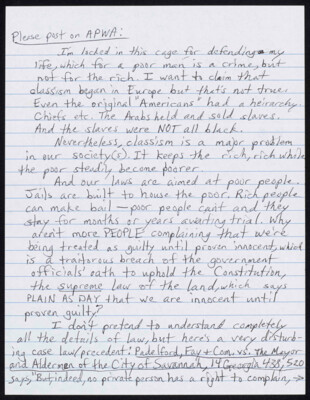 Please post on APWA:
I'm locked in this cage for defending my
life, which for a poor man is a crime, but
not for the rich. I want to claim that
classism began in Europe but that's not true.
Even the original "Americans" had a heirarchy.
Chiefs etc. The Arabs held and sold slaves.
And the slaves were NOT all black.
Nevertheless, classism is a major problem
in our society(s). It keeps the rich, rich while
the poor steadily become poorer.
And our laws are aimed at poor people.
Jails are built to house the poor. Rich people
can make bail — poor people can't and they
stay for months or years awaiting trial. Why
aren't more PEOPLE complaining that we're
being treated as guilty until proven innocent, which
is a traitorous breach of the government
officials' oath to uphold the Constitution,
the supreme law of the land, which says
PLAIN AS DAY that we are innocent until
proven guilty?
I don't pretend to understand completely
all the details of law, but here's a very disturb-
ing case law/precedent: Padelford, Fay & Com. vs. The Mayor
and Aldermen of the City of Savannah, 14 Georgia 438, 520
says, "But indeed, no private person has a right to complain, →